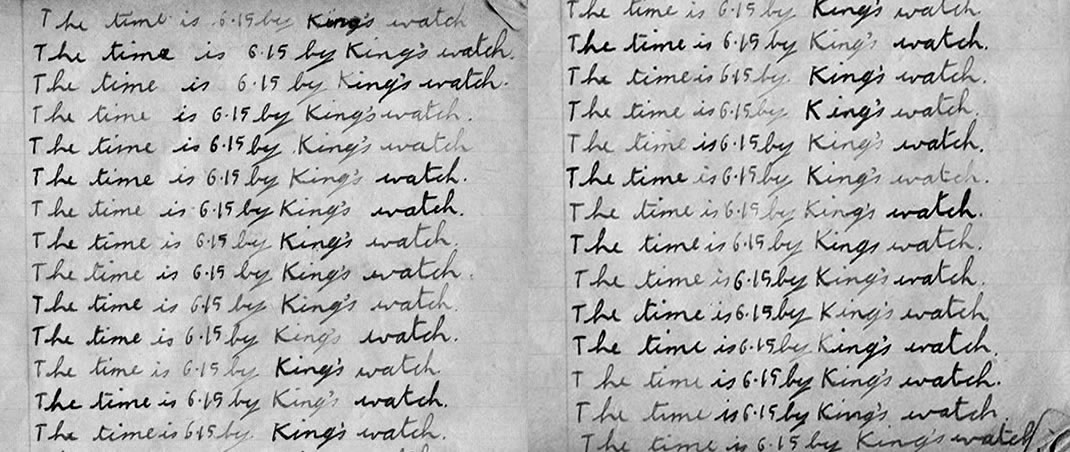 The time is 6·15 by King's watch
The time is 6·15 by King's watch.
The time is 6·15 by King's watch.
The time is 6·15 by King's watch.
The time is 6·15 by King's watch
The time is 6·15 by King's watch.
The time is 6·15 by King's watch.
The time is 6·15 by King's watch.
The time is 6·15 by King's watch.
The time is 6·15 by King's watch
The time is 6·15 by King's watch.
The time is 6·15 by King's watch
The time is 6·15 by King's watch.
The time is 6·15 by King's watch.
The time is 6·15 by King's watch
The time is 6·15 by King's watch.
The time is 6·15 by King's watch.
The time is 6·15 by King's watch.
The time is 6·15 by King's watch.
The time is 6·15 by King's watch.
The time is 6·15 by King's watch.
The time is 6·15 by King's watch.
The time is 6·15 by King's watch.
The time is 6·15 by King's watch.
The time is 6·15 by King's watch.
The time is 6·15 by King's watch.
The time is 6·15 by King's watch.
The time is 6·15 by King's watch